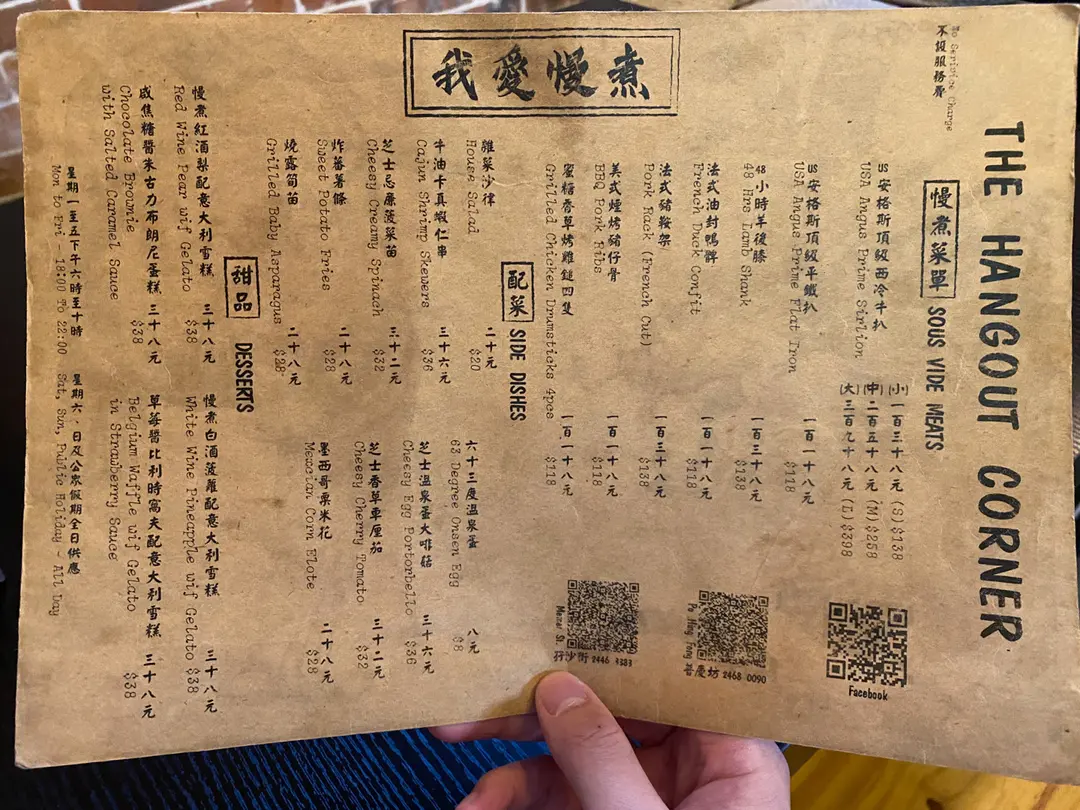 我愛慢煮
THE HANGOUT CORNER
不設服務費
慢煮菜單 SOUS VIDE MEATS
US安格斯頂級西冷牛扒
USA Angus Prime Sirlion
(小) 一百三十八元 (S) $138
(中) 二百五十八元 (M) $258
(大) 三百九十八元 (L) $398
US安格斯頂級平鐵扒 一百一十八元
USA Angus Prime Flat Iron $118
48小時羊後膝 一百三十八元
48 Hrs Lamb Shank $138
法式油封鴨髀 一百一十八元
French Duck Confit $118
法式豬鞍架 一百三十八元
Pork Rack (French Cut) $138
美式煙烤豬仔骨 一百一十八元
BBQ Pork Ribs $118
蜜糖香草烤雞鎚四隻 一百一十八元
Grilled Chicken Drumsticks 4pcs $118
Facebook
Po Hing Fong
普慶坊 2468 0090
Mercer St.
孖沙街 2446 8383
配菜 SIDE DISHES
雜菜沙律 二十元
House Salad $20
牛油卡真蝦仁串 三十六元
Cajun Shrimp Skewers $36
芝士忌廉菠菜苗 三十二元
Cheesy Creamy Spinach $32
炸蕃薯條 二十八元
Sweet Potato Fries $28
燒露筍苗 二十八元
Grilled Baby Asparagus $28
六十三度溫泉蛋 八元
63 Degree Onsen Egg $8
芝士溫泉蛋大啡菇 三十六元
Cheesy Egg Portorbello $36
芝士香草車厘茄 三十二元
Cheesy Cherry Tomato $32
墨西哥粟米花 二十八元
Mexcian Corn Elote $28
甜品 DESSERTS
慢煮紅酒梨配意大利雪糕 三十八元
Red Wine Pear wif Gelato $38
咸焦糖醬朱古力布朗尼蛋糕 三十八元
Chocolate Brownie $38
with Salted Caramel Sauce
慢煮白酒菠蘿配意大利雪糕 三十八元
White Wine Pineapple wif Gelato $38
草莓醬比利時窩夫配意大利雪糕 三十八元
Belgium Waffle wif Gelato $38
in Strawberry Sauce
星期一至五下午六時至十時
Mon to Fri - 18:00 To 22:00
星期六、日及公眾假期全日供應
Sat, Sun, Public Holiday - All Day